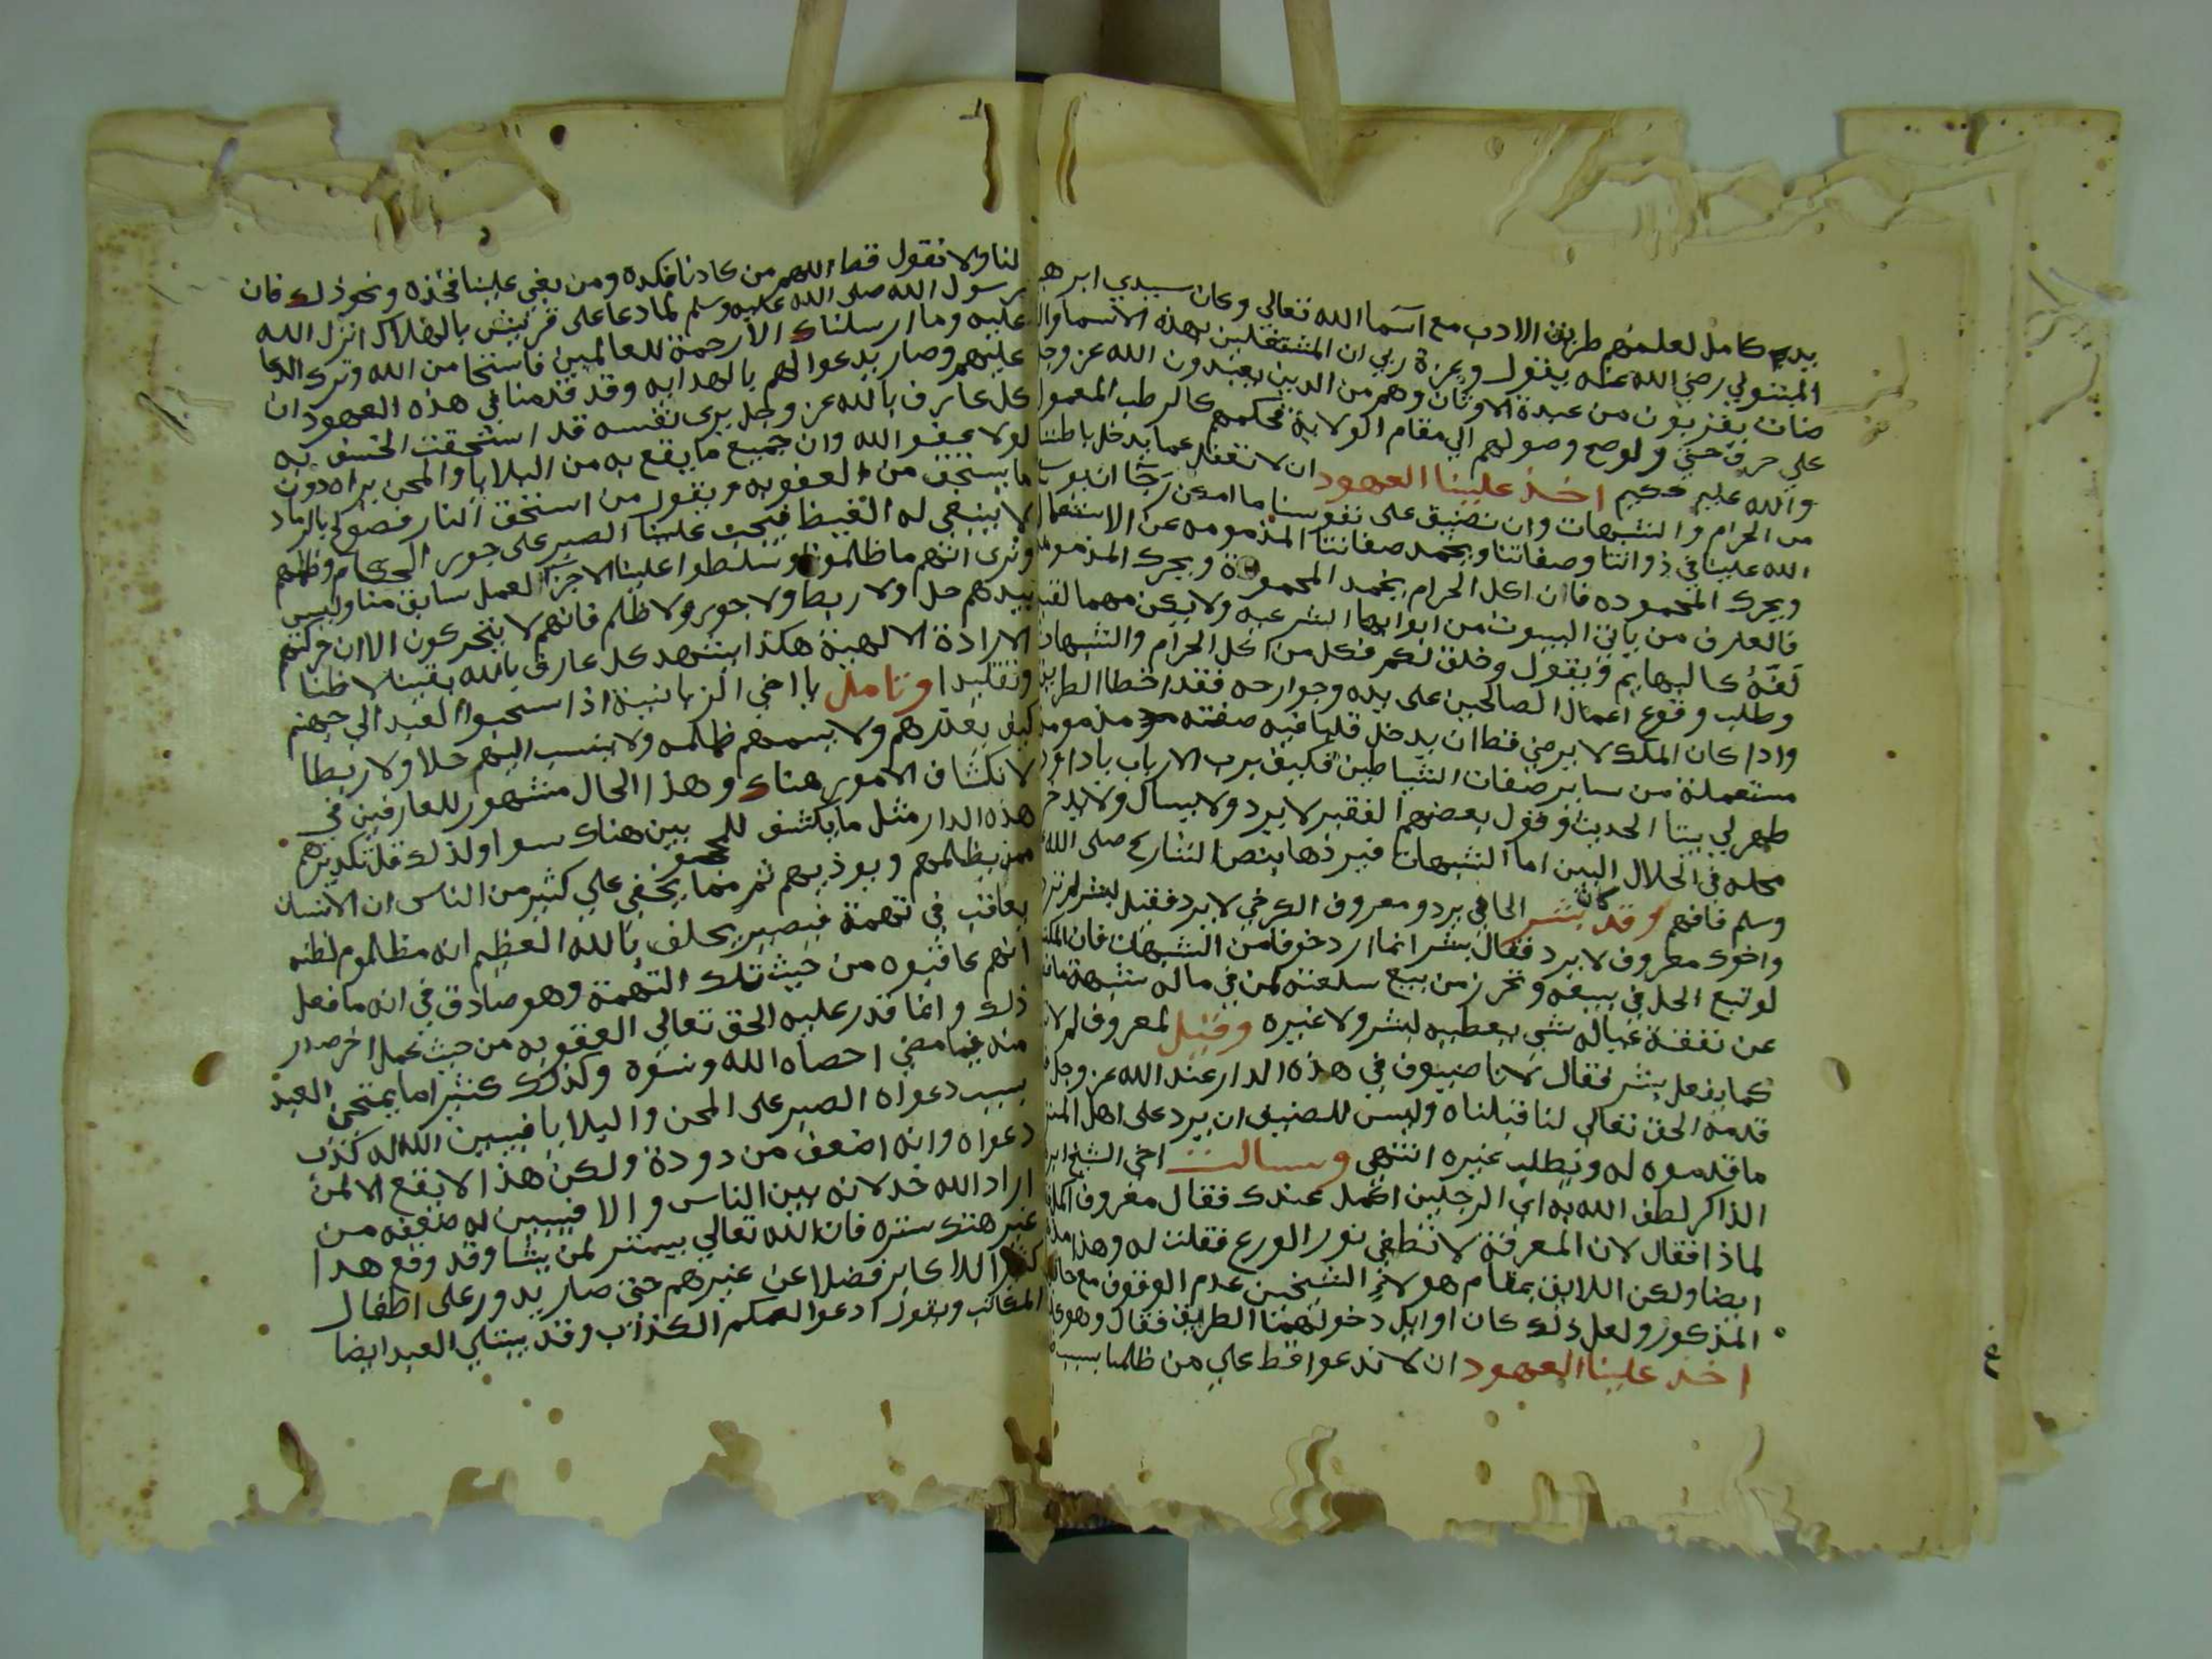 يدي كامل لعلمهم طريق الادب مع اسما الله تعالي وكان سيدي ابرهيم
المتبولي رضي الله عنه يقول وعزة ربي ان المشتغلين بهذه الاسما وال
ضات يقربون من عبدة الاوثان وهم من الذين يعبدون الله عز وجل
علي حرف حتي ولو صح وصولهم الي مقام الولاية فحكمهم كالرطب المعمول
والله عليم حكيم اخذ علينا العهود ان لا نغفل عما يدخل باطننا
من الحرام والشبهات وان نضيق علي نفوسنا ما امكن رجآ ان يتوب
الله علينا في ذواتنا وصفاتنا ويخمد صفاتنا المذمومه عن الاستعمال
ويحرك المحموده فان اكل الحرام يخمد المحمودة ويحرك المذمومة
فالعارف من ياتي البيوت من ابوابها الشرعيه ولا يكن مهما لقي
لفّهُ كالبهايم ويقول وخلق لكم فكل من اكل الحرام والشبهات
وطلب وقوع اعمال الصالحين علي يده وجوارحه فقد اخطا الطريق
واذا كان الملك لا يرضي قط ان يدخل قلبا فيه صفة مذمومة
مستعملة من ساير صفات الشياطين فكيف برب الارباب ياداود
طهر لي بيتا الحديث وقول بعضهم الفقير لا يرد ولا يسال ولا يدخر
محله في الحلال البين اما الشبهات فيردها بنص الشارع صلي الله
وسلم فافهم وقد كان بشر الحافي يرد ومعروف الكرخي لا يرد فقيل لبشر لم ترد
واخوك معروف لا يرد فقال بشر انما ارد خوفا من الشبهات فان المكتسب
لو تتبع الحل في بيعه وتحرز من بيع سلعته لمن في ماله شبهة ما
عن نفقة عياله شي يعطيه لبشر ولا غيره وقيل لمعروف لم لا
كما يفعل بشر فقال لانا ضيوف في هذه الدار عند الله عز وجل
قدمه الحق تعالي لنا قبلناه وليس للضيف ان يرد علي اهل المنزل
ما قدموه له ويطلب غيره انتهي وسالت اخي الشيخ ابو
الذاكر لطف الله به اي الرجلين اكمل عندك فقال معروف اكمل
لماذا فقال لان المعرفة لا تطفي نور الورع فقلت له وهذا
ايضا ولكن اللايق بمقام هولاءِ الشيخين عدم الوقوف مع حال
المذكور ولعل ذلك كان اوايل دخولهما الطريق فقال وهو كذلك
اخذ علينا العهود ان لا ندعوا قط علي من ظلمنا بسبب
لنا ولا نقول قط اللهم من كادنا فكده ومن بغي علينا فخذه ونحو ذلك فان
رسول الله صلي الله عليه وسلم لما دعا علي قريش بالهلاك انزل الله
عليه وما ارسلناك الا رحمة للعالمين فاستحا من الله وترك الدعا
عليهم وصار يدعوا لهم بالهدايه وقد قدمنا في هذه العهود ان
كل عارف بالله عز وجل يري نفسه قد استحقت الخسف به
لولا عفو الله وان جميع ما يقع به من البلايا والمحن يراه دون
ما يستحق من العقوبه ويقول من استحق النار فصولح بالرماد
لا ينبغي له الغيظ فيجب علينا الصبر علي جور الحكام وظلمهم
ونري انهم ما ظلمونا وتسلطوا علينا الا جزآ لعمل سابق منا وليس
بيدهم حل ولا ربط ولا جور ولا ظلم فانهم لا يتحركون الا ان حركتهم
الارادة الالهية هكذا يشهد كل عارف بالله يقينا لا ظنا
وتقليدا وتامل يا اخي الزبانية اذا سحبوا العبد الي جهنم
كيف يعذرهم ولا يسمهم ظلمه ولا ينسب اليهم حلا ولا ربطا
لانكشاف الامور هناك وهذا الحال مشهور للعارفين في
هذه الدار مثل ما يكشف للمحجوبين هناك سوا ولذلك قل تكديرهم
ممن يظلمهم ويوذيهم ثم مما يخفي علي كثير من الناس ان الانسان
يعاقب في تهمة فيصير يحلف بالله العظيم انه مظلوم لظنه
انهم عاقبوه من حيث تلك التهمة وهو صادق في انه ما فعل
ذلك وانما قدر عليه الحق تعالي العقوبه من حيث عمل اخر صدر
منه فيما مضي احصاه الله ونسوه وكذلك كثيرا ما يمتحن العبد
بسبب دعواه الصبر علي المحن والبلايا فيبين الله له كذب
دعواه وانه اضعف من دودة ولكن هذا لا يقع الا لمن
اراد الله خذلانه بين الناس والا فيبين له ضعفه من
غير هتك ستره فان الله تعالي يستر لمن يشا وقد وقع هذا
كثيرا للاكابر فضلا عن غيرهم حتي صار يدور علي اطفال
المكاتب ويقول ادعوا لعمكم الكذاب وقد يبتلي العبد ايضا